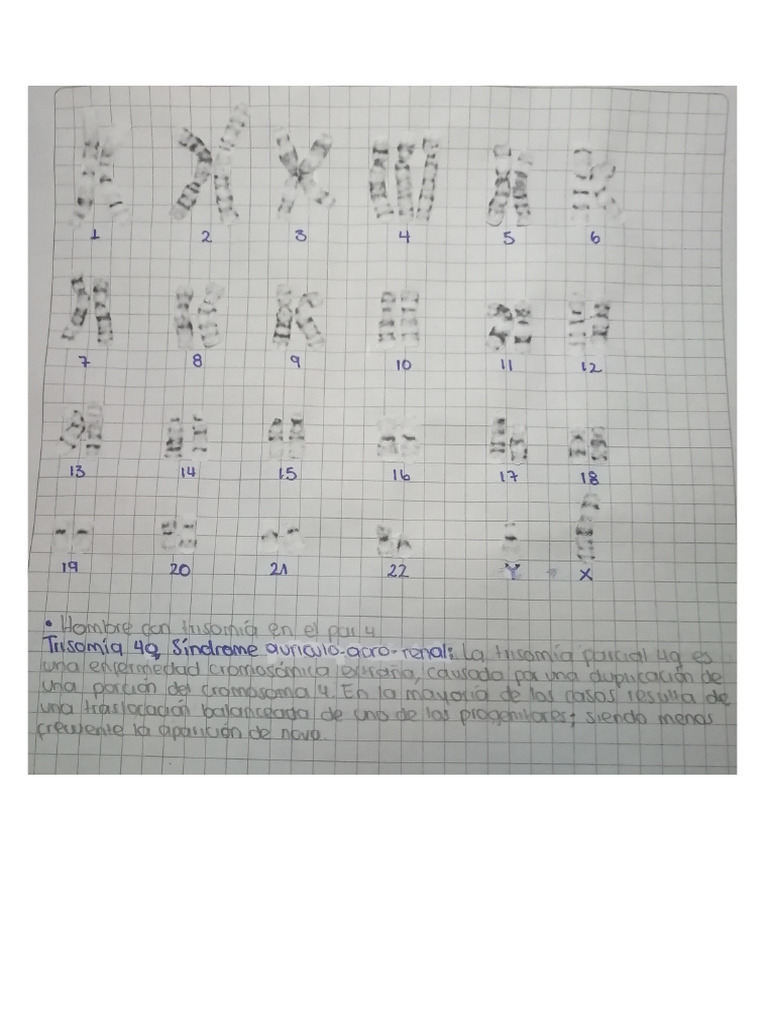 1 2 3 4 5 6
7 8 9 10 11 12
13 14 15 16 17 18
19 20 21 22 Y X
• Hombre con trisomía en el par 4
Trisomía 4q, Síndrome auriculo-acro-renal: La trisomía parcial 4q es
una enfermedad cromosómica extraña, causada por una duplicación de
una porción del cromosoma 4. En la mayoría de los casos resulta de
una traslocación balanceada de uno de los progenitores; siendo menos
frecuente la aparición de novo.